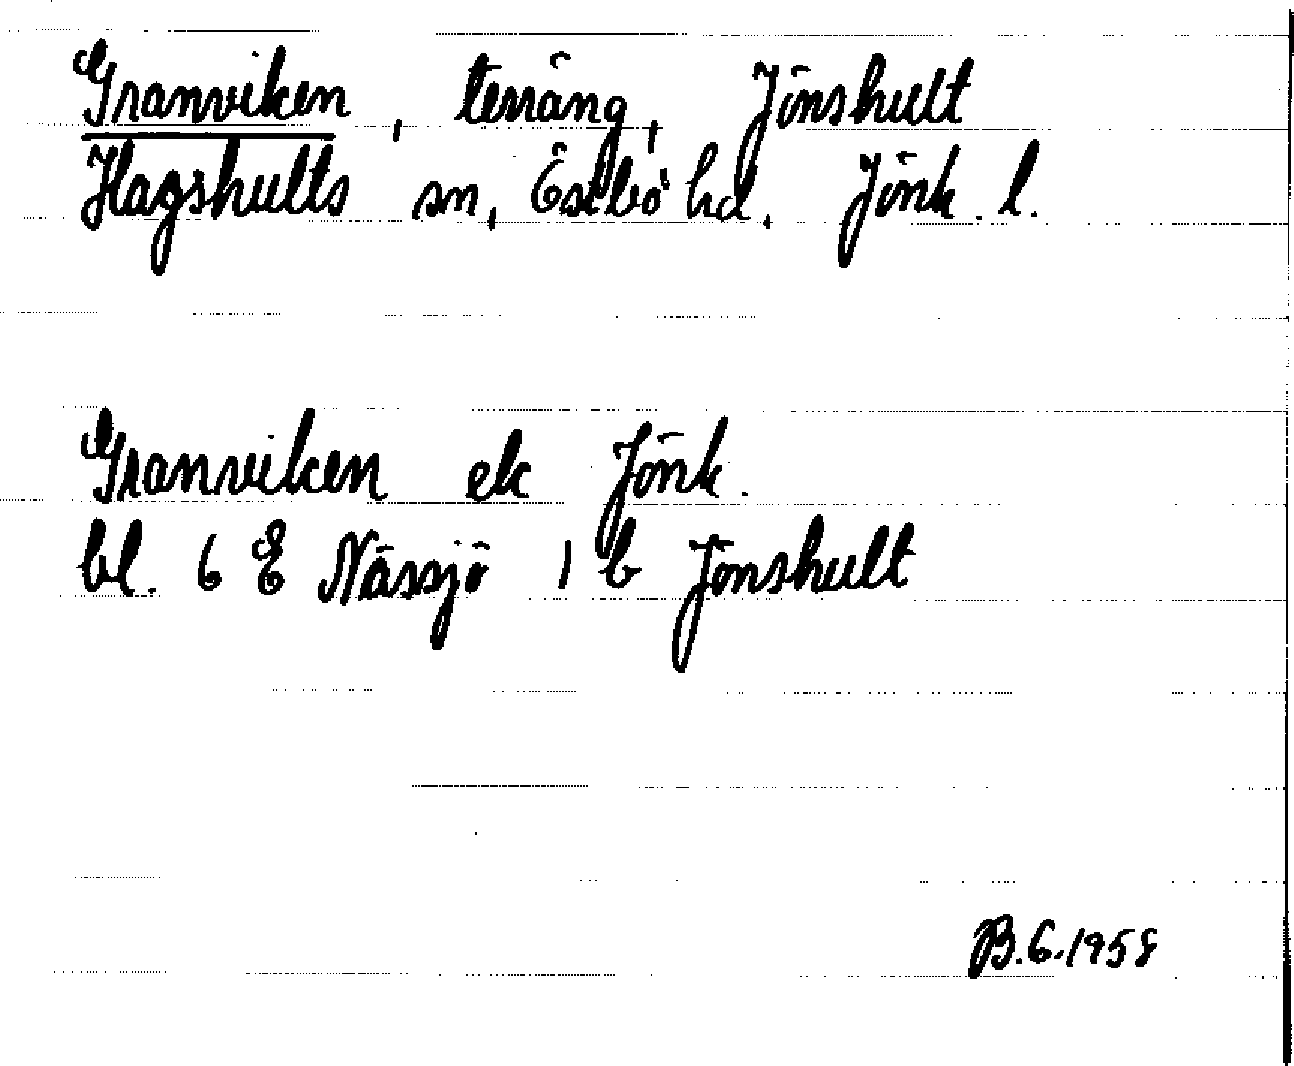 Granviken, terräng, Jönshult
Hagshults sn, Östbo hd. Jönk. l.
Granviken ek Jönk.
bl. 6 E Nässjö 1 b Jönshult
B.G.1958